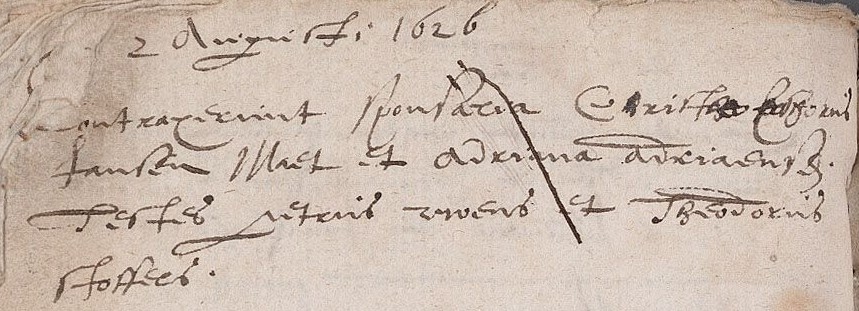 2 Augusti 1626
Contraxerunt sponsalia Christophorus
Jansen Maet et Adriana Adriaensz.
Testes Petrus et Theodorus
Stoffers.